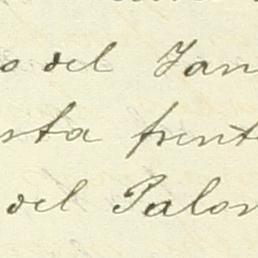 o del Jan
sta frent
del Palom